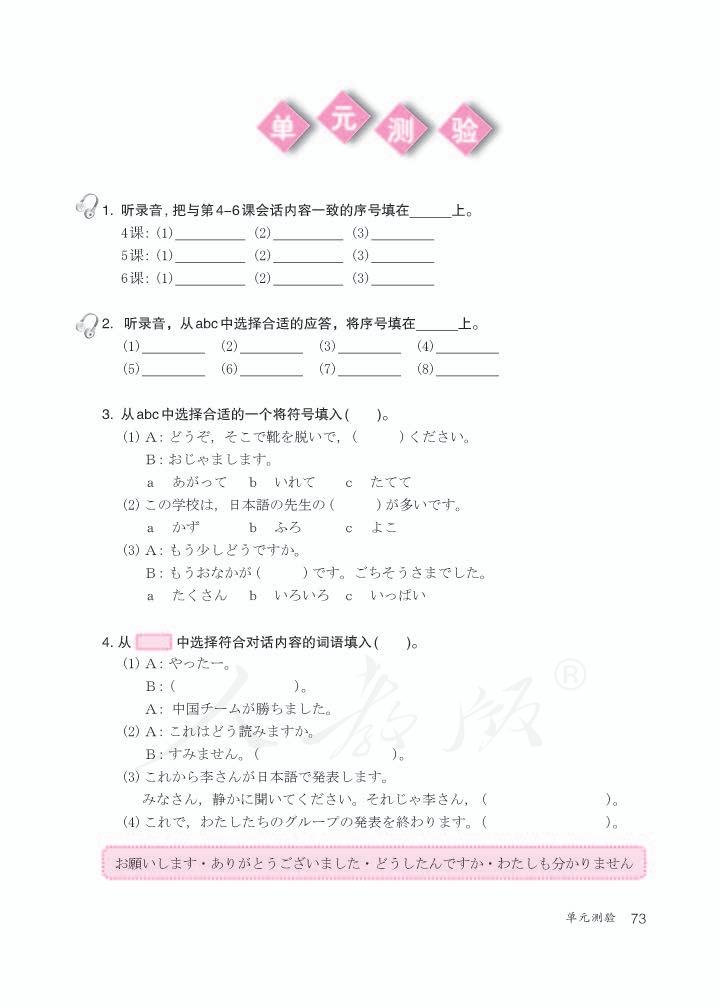 单元测验
1. 听录音, 把与第4-6课会话内容一致的序号填在______上。
4课: (1)__________ (2)__________ (3)_________
5课: (1)__________ (2)__________ (3)_________
6课: (1)__________ (2)__________ (3)_________
2. 听录音，从abc中选择合适的应答，将序号填在______上。
(1)_________ (2)_________ (3)_________ (4)_________
(5)_________ (6)_________ (7)_________ (8)_________
3. 从abc中选择合适的一个将符号填入(　　)。
(1) A: どうぞ，そこで靴を脱いで，(　　　)ください。
B: おじゃまします。
a　あがって　b　いれて　c　たてて
(2) この学校は，日本語の先生の(　　　)が多いです。
a　かず　b　ふろ　c　よこ
(3) A: もう少しどうですか。
B: もうおなかが(　　　)です。ごちそうさまでした。
a　たくさん　b　いろいろ　c　いっぱい
4. 从　　中选择符合对话内容的词语填入(　　)。
(1) A: やったー。
B: (　　　　　　　　)。
A: 中国チームが勝ちました。
(2) A: これはどう読みますか。
B: すみません。(　　　　　　　　　)。
(3) これから李さんが日本語で発表します。
みなさん，静かに聞いてください。それじゃ李さん，(　　　　　　　　)。
(4) これで，わたしたちのグループの発表を終わります。(　　　　　　　　)。
お願いします・ありがとうございました・どうしたんですか・わたしも分かりません
人教版®
单元测验　73